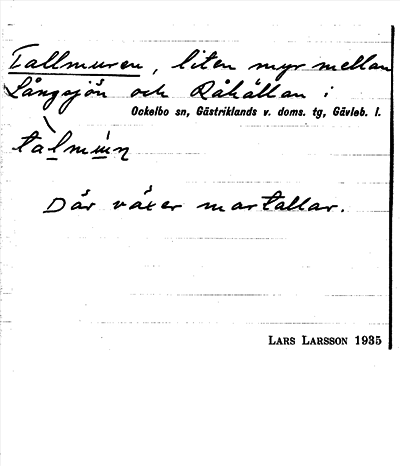 Tallmuren, liten myr mellan
Långsjön och Råhällan i
Ockelbo sn, Gästriklands v. doms. tg, Gävleb. l.
Där växer martallar.
LARS LARSSON 1935